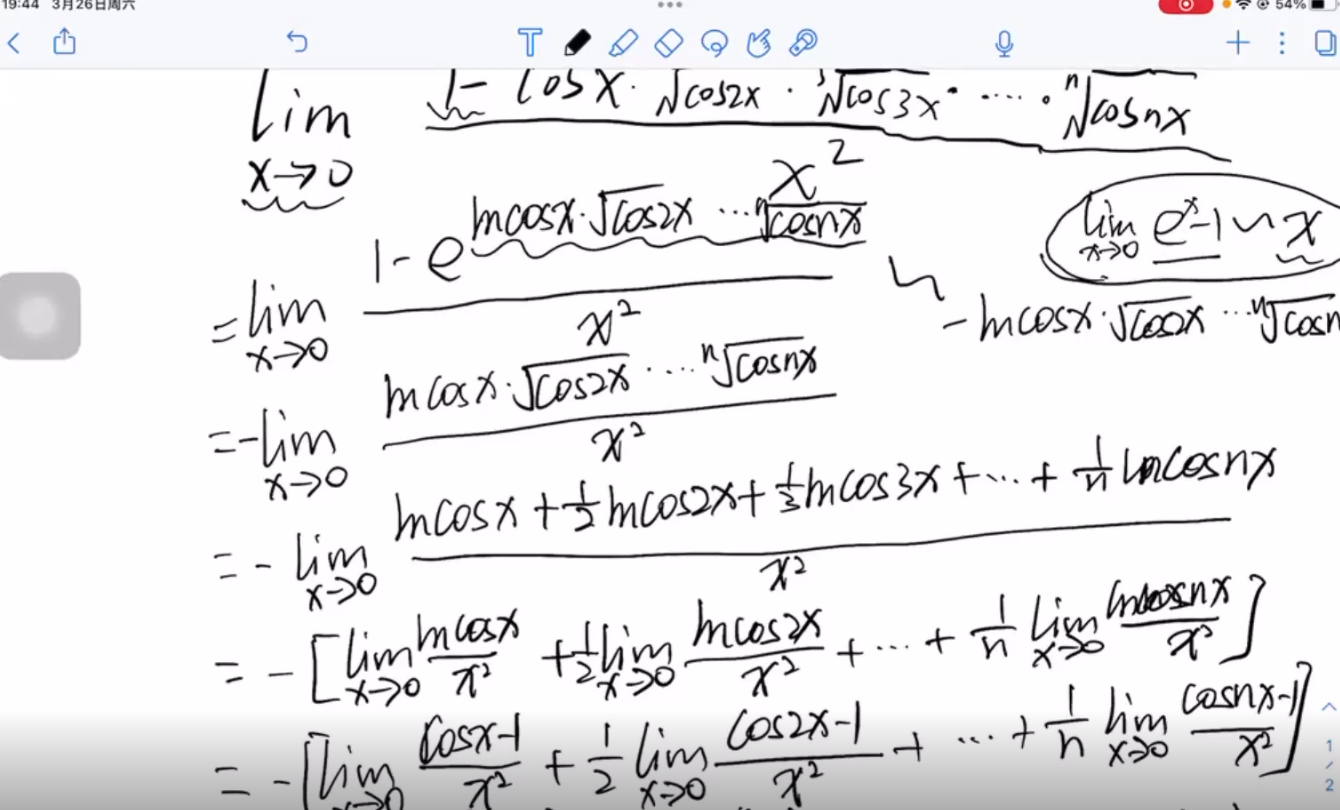 19:44 3月26日周六 54%
lim x→0 1 - cosx · √cos2x · ³√cos3x · ···· · ⁿ√cosnx / x²
= lim x→0 1 - e^(lncosx · √cos2x ··· ⁿ√cosnx) / x²
lim x→0 eˣ-1 ~ x
~ -lncosx · √cos2x ··· ⁿ√cosn
= - lim x→0 lncosx · √cos2x ···· ⁿ√cosnx / x²
= - lim x→0 lncosx + 1/2 lncos2x + 1/3 lncos3x + ··· + 1/n lncosnx / x²
= - [lim x→0 lncosx / x² + 1/2 lim x→0 lncos2x / x² + ··· + 1/n lim x→0 lncosnx / x²]
= - [lim x→0 cosx-1 / x² + 1/2 lim x→0 cos2x-1 / x² + ··· + 1/n lim x→0 cosnx-1 / x²]
1/2